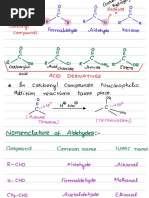 Carbonyl
Compounds
Formaldehyde Aldehyde Ketone
Carboxylic
Acid
Acid
Chloride
Amide
Esters
ACID DERIVATIVE
In Carbonyl Compounds Nucleophilic
Addition reactions takes place
H⊕ Nu⊖
(TETRAHEDRAL)
Nomenclature of Aldehydes:-
Compound Common name IUPAC name
R-CHO Aldehyde Alkanal
H-CHO Formaldehyde Methanal
CH₃-CHO Acetaldehyde Ethanal